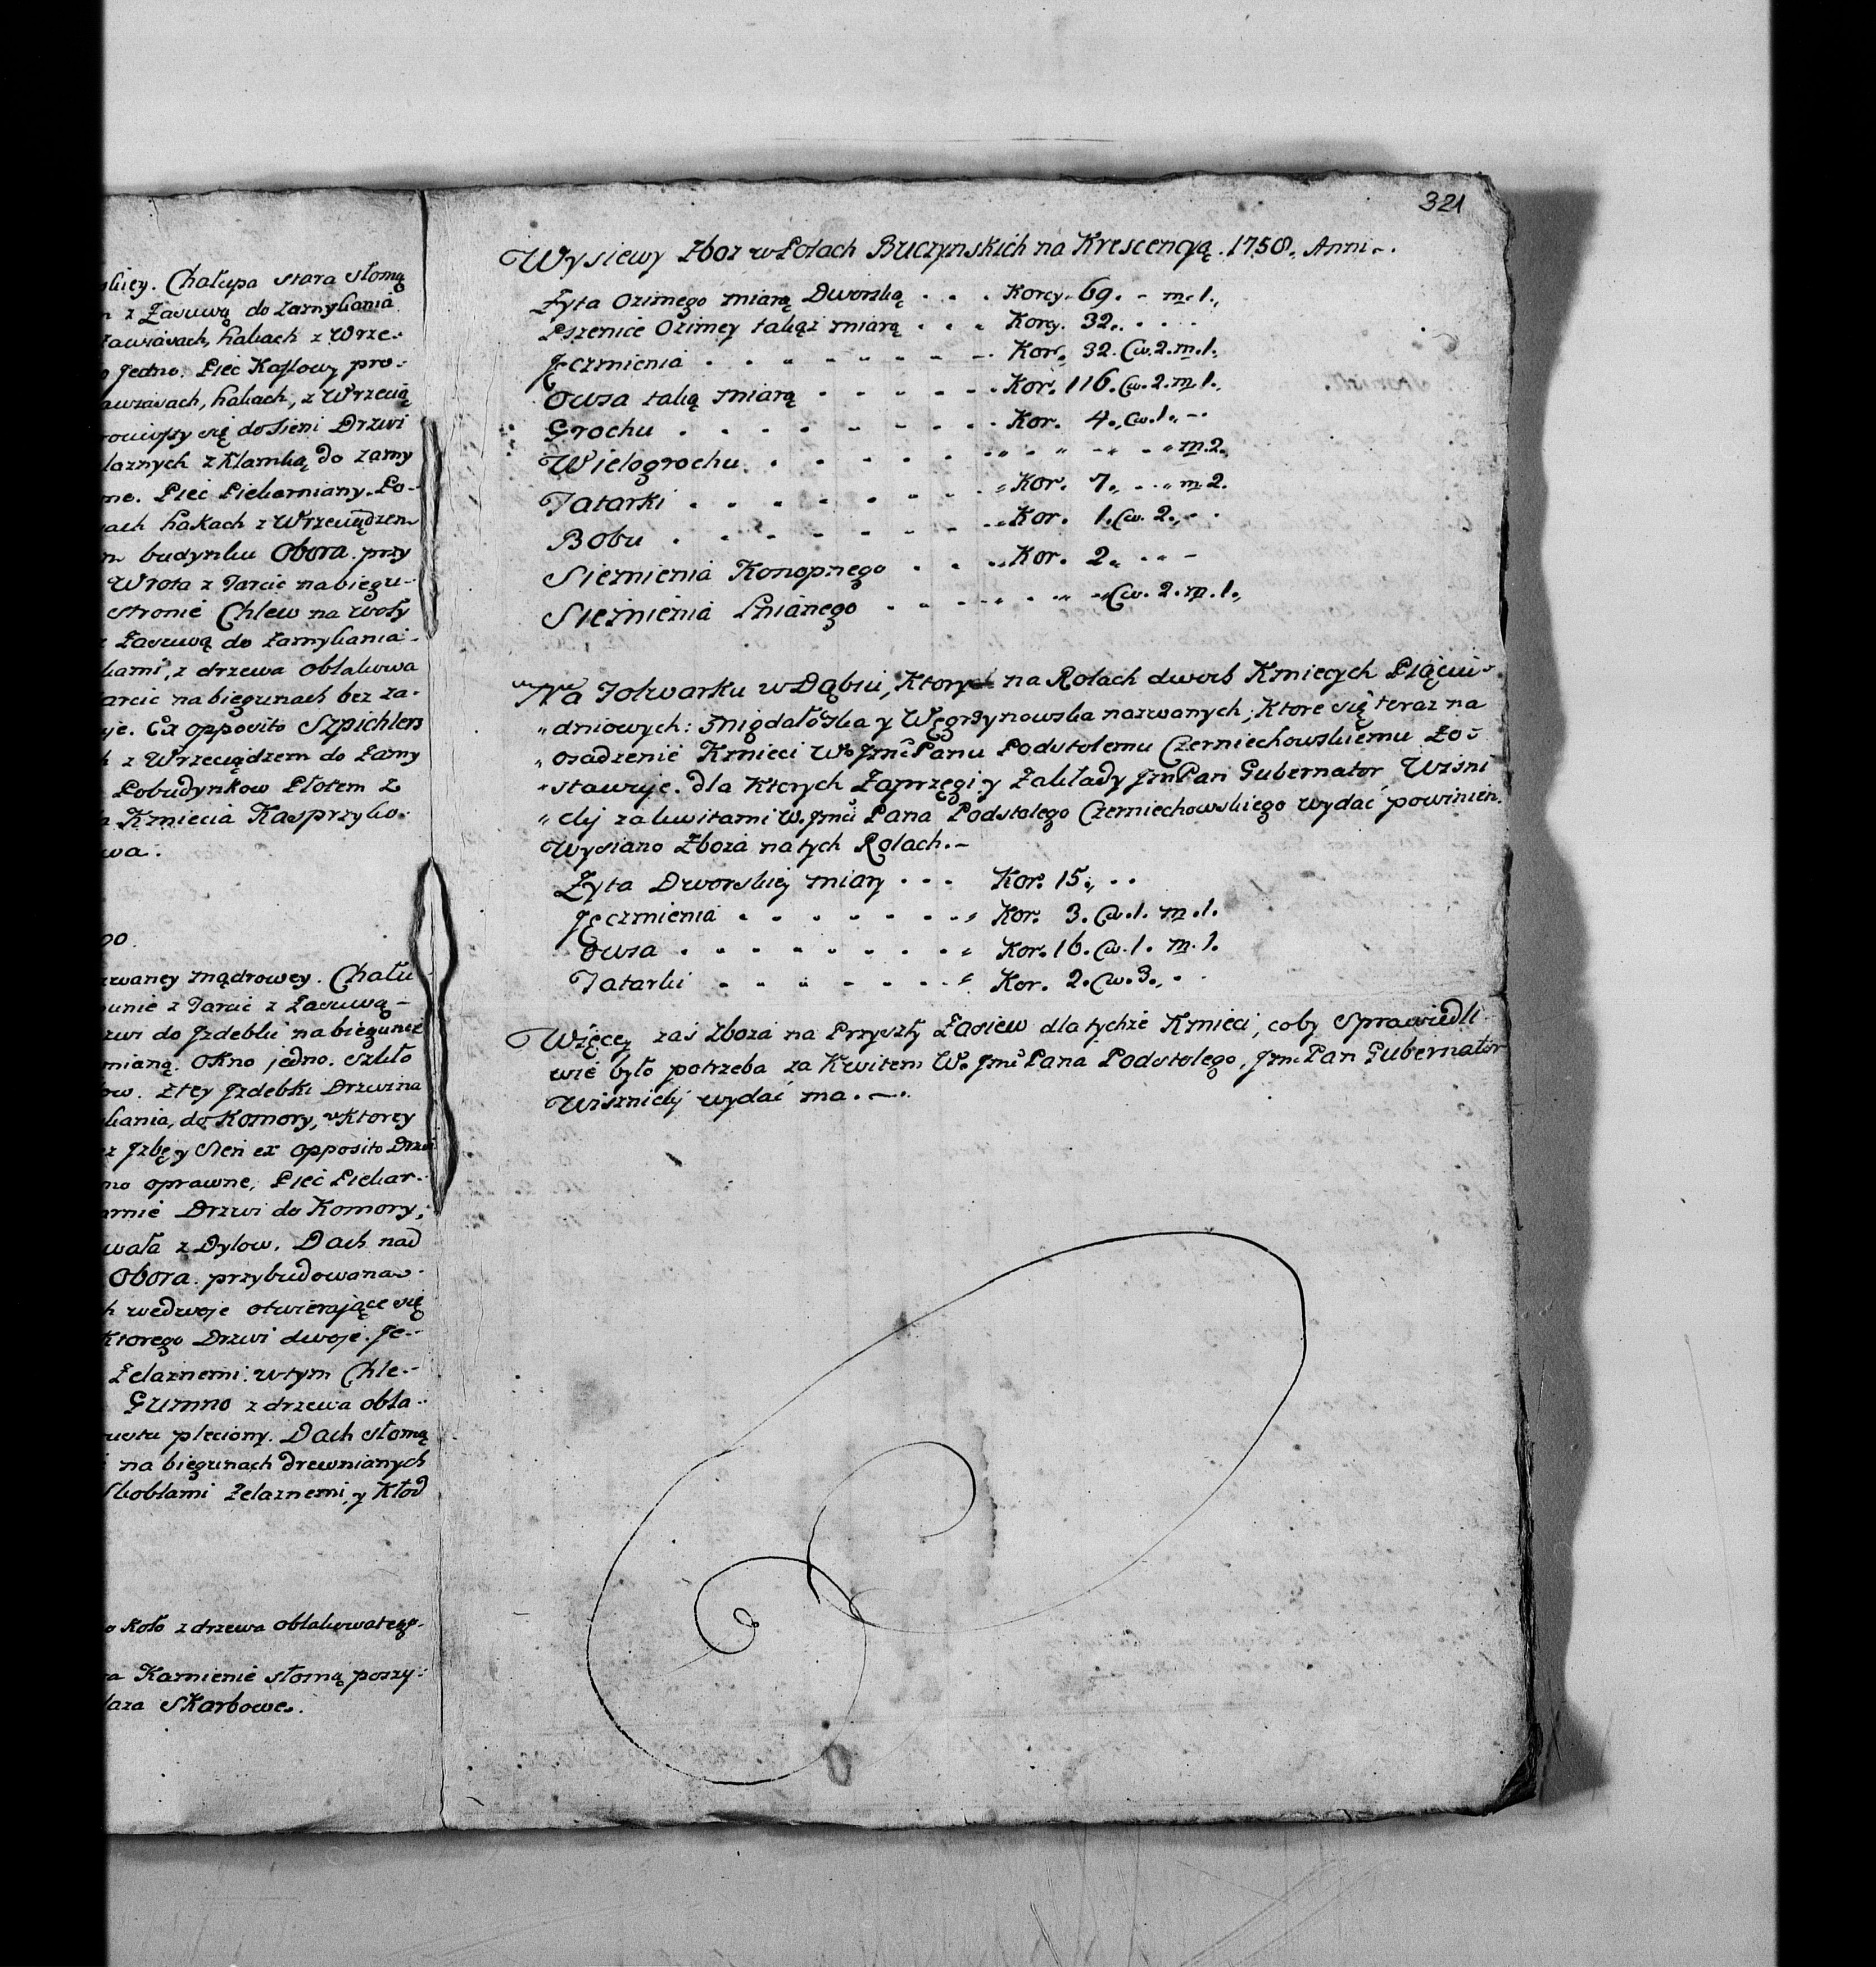 skiey. Chałupa stara słomą
z Zasuwą do zamykania
zawiasach, hakach z Wrze-
jedno. Piec Kaflowy pro-
zawiasach, hakach, z Wrzecią
się do Sieni Drzwi
laznych z Klamką do zamy
Piec Piekarniany. Po-
hakach z Wrzeciądzem
budynku Obora przy
Wrota z Tarcic na biegu-
stronie Chlew na woły
z Zasuwą do zamykania
kami, z drzewa obłakowa
tarcic na biegunach bez za-
Ex opposito Szpichlerz
z Wrzeciądzem do zamy
Pobudynkow Płotem z
Kmiecia Kasprzyko-
wa.
zwaney mądrowey. Chału
unie z Tarcic z Zasuwą
zwi do Jzdebki na biegunie
mianą. Okno jedno. szkło
ow. z tey Jzdebki Drzwi na
kania, do Komory, w Ktorey
Jzbę y Sień ex opposito Drzwi
no oprawne, Piec Piekar-
arnie Drzwi do Komory,
wała z Dylow. Dach nad
Obora przybudowana
wedwoje otwierające się
Ktorego Drzwi dwoje. Je-
Zelaznemi. w tym Chle-
Gumno z drzewa obła-
rustu pleciony. Dach słomą
na biegunach drewnianych
Skoblami zelaznemi, y Kłod
Koło z drzewa obłakowatego.
Kamienie słomą poszy-
laza Skarbowe.
321
Wysiewy Zboz w Polach Buczynskich na Krescencyą. 1758. Anni.
Zyta Ozimego miarą Dworską . . . Korcy. 69. - m. 1.
Pszenice Ozimey takąż miarą . . . Korcy. 32. . . .
Jęczmienia . . . . . . . . Kor. 32. Cw. 2. m. 1.
Owsa taką miarą . . . . . . Kor. 116. Cw. 2. m. 1.
Grochu . . . . . . . . . Kor. 4. Cw. 1. -
Wielogrochu . . . . . . . . . . m. 2.
Tatarki . . . . . . . . Kor. 7. . . m. 2.
Bobu . . . . . . . . Kor. 1. Cw. 2. - .
Siemienia Konopnego . . . Kor. 2. . . -
Siemienia Lnianego . . . . . . . Cw. 2. m. 1.
Na Folwarku w Dąbiu, Ktory na Rolach dwoch Kmiecych Piąciu-
„dniowych: Migdałoska y Węgrzynowska nazwanych, Ktore się teraz na
„osadzenie Kmieci Wo Jmci Panu Podstolemu Czerniechowskiemu Zo-
„stawuje. dla Ktorych Zaprzęgi y Zakłady Jm Pan Gubernator Wisni
„cky za kwitami W. Jmci Pana Podstolego Czerniechowskiego wydać powinien.
Wysiano Zboza na tych Rolach. -
Zyta Dworskiey miary . . . Kor. 15. . .
Jęczmienia . . . . . . . . Kor. 3. Cw. 1. m. 1.
Owsa . . . . . . . . . Kor. 16. Cw. 1. m. 1.
Tatarki . . . . . . . . Kor. 2. Cw. 3. .
Więcey zaś zboza na Przyszły Zasiew dla tychże Kmieci, coby Sprawiedli-
wie było potrzeba za Kwitem Wo Jmci Pana Podstolego, Jmc Pan Gubernator
Wisznicky wydać ma. -